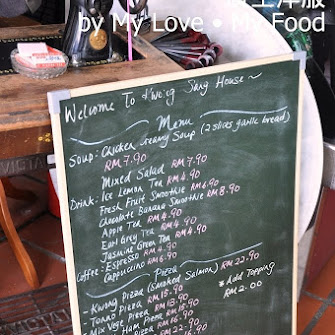 by My Love • My Food
Welcome To Kwong Sang House~
Menu
Soup: Chicken creamy Soup (2 slices garlic bread)
RM7.90
Mixed Salad RM7.90
Drink: Ice Lemon Tea RM4.90
Fresh Fruit Smoothie RM6.90
Chocolate Banana Smoothie RM8.90
Apple Tea RM4.90
Earl Grey Tea RM4.90
Jasmine Green Tea RM4.90
Coffee: Espresso RM4.90
Cappuccino RM6.90
Pizza
- Kwong Pizza (Smoked Salmon) RM22.90
- Tonno Pizza RM18.90
- Ham Pizza RM18.90
- Mix Vege Pizza RM16.90
* Add Topping
RM2.00